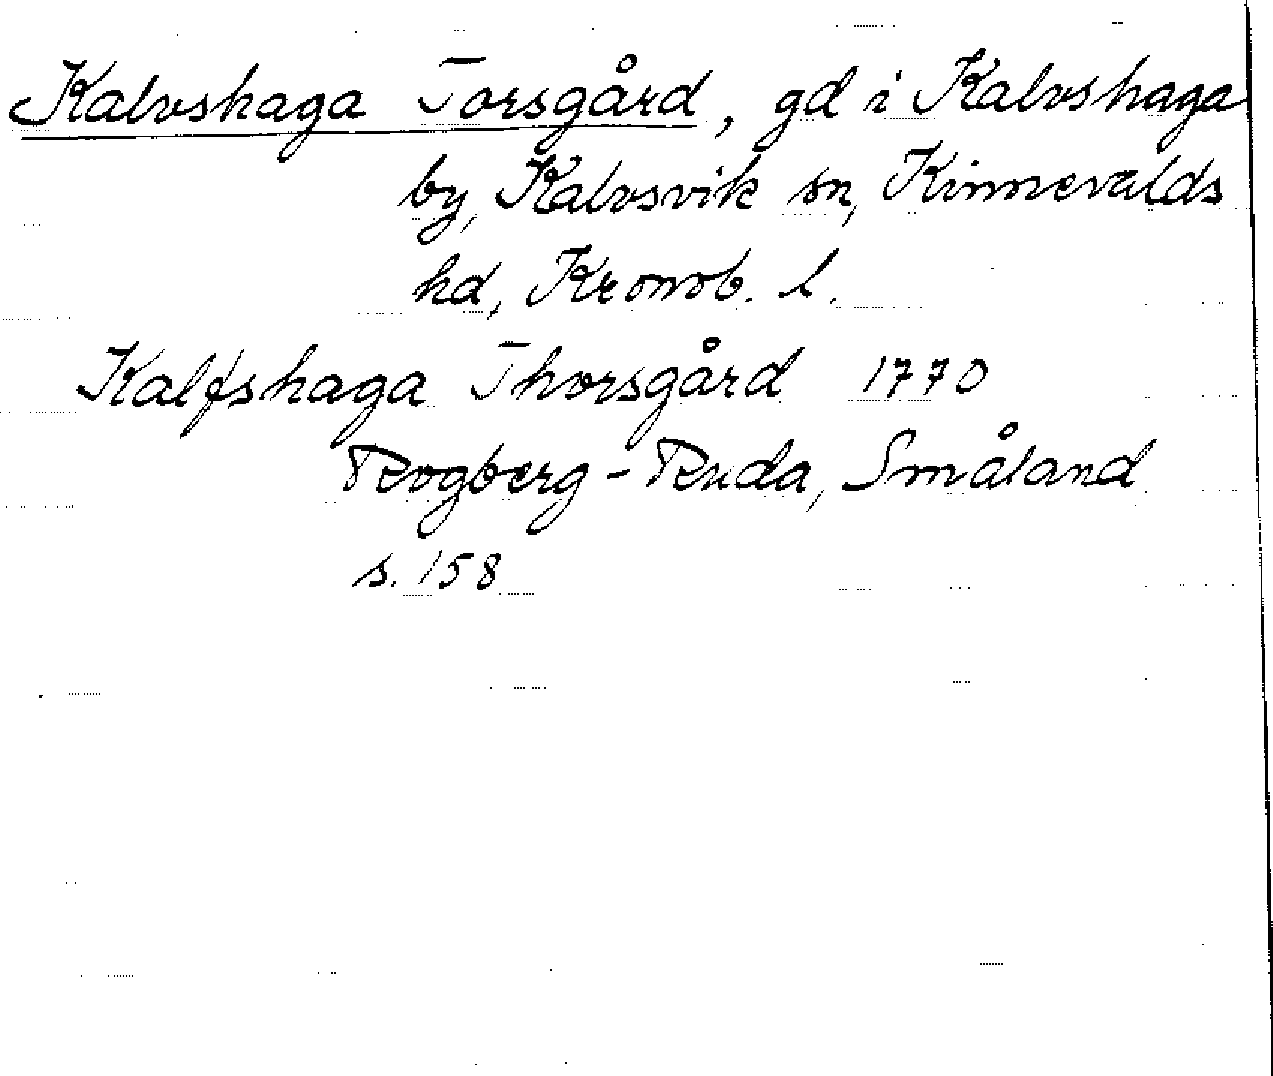 Kalvshaga Torsgård, gd i Kalvshaga
by, Kalvsvik sn, Kinnevalds
hd, Kronob. l.
Kalfshaga Thorsgård 1770
Rogberg-Ruda, Småland
s. 158